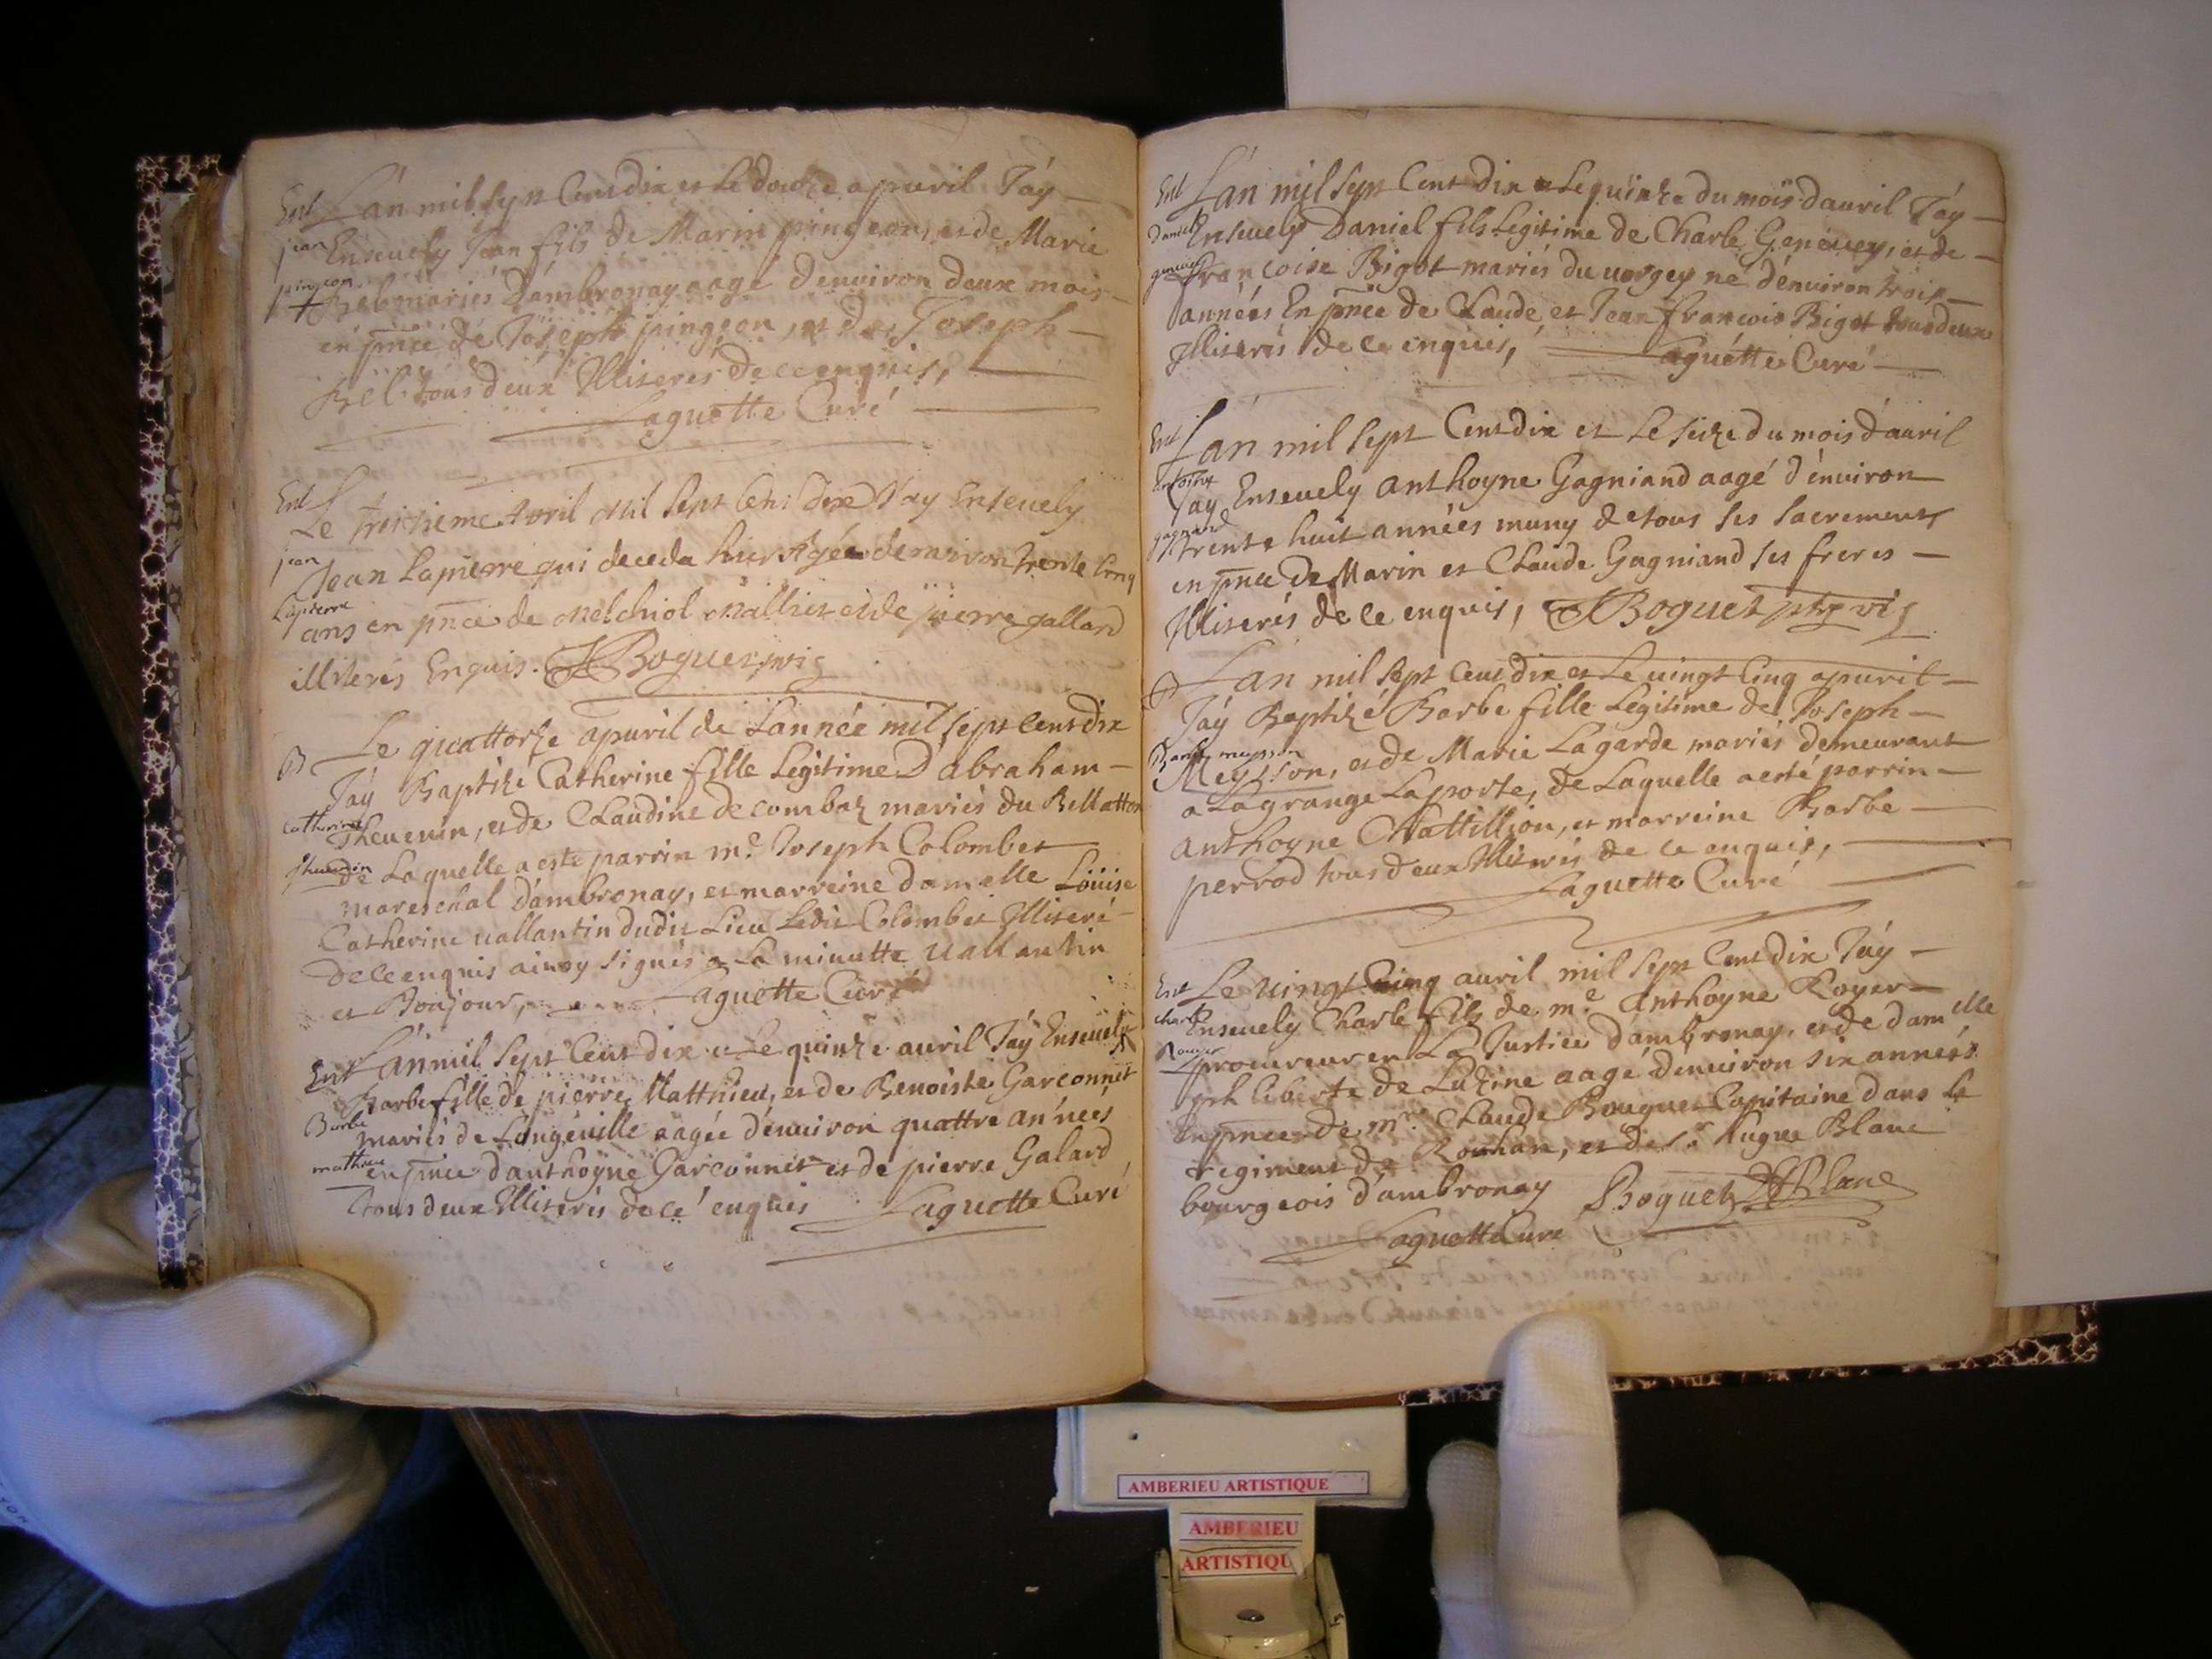 Ent L'an mil sept Cens dix et Le douze apuril J'ay
jean Enseuely Jean fils de Marin pingeon, et de Marie
pingeon + Bel mariés d'ambronay aagé d'enuiron deux mois
en pnce de Joseph pingeon, et de Joseph
Bel tous deux Illiterés de ce enquis,
Laguette Curé
Ent Le treisieme Avril Mil Sept Cens Dix J'ay Enseuely
jean Jean Lapierre qui deceda hier Agée denviron trente Cinq
Lapierre ans en pnce de Melchiol Malliet et de pierre gallard
illiterés Enquis. JBoguet vic
B Le quattorze apuril de L'année mil sept cens dix
J'ay Baptizé Catherine fille Legitime D'abraham
catherine Theuenin, et de Claudine decombaz mariés du Bellatton
theuenin de Laquelle a esté parrin me. Joseph Colombet
mareschal d'ambronay, et marreine damelle Loüise
Catherine uallantin dudit Lieu Ledit Colombet Illiteré
de ce enquis ainsy signés a La minutte uallantin
et Boujour, Laguette Curé
Ent L'an mil sept Cens dix et Le quinze auril J'ay Enseuely
Barbe fille de pierre Matthieu, et de Benoiste Garconnet
Barbe mariés de Longeuille aagée d'enuiron quattre années
mathieu en pnce d'anthoyne Garconnet et de pierre Galard
tous deux Illiterés de ce enquis Laguette Curé
Ent L'an mil sept Cent Dix et Le quinze du mois d'auril J'ay
daniel Enseuely Daniel fils Legitime de Charle Geneuey, et de
geneuey françoise Bigot mariés du uorgey né d'enuiron trois
années En pnce de Claude, et Jean françois Bigot tous deux
Illiterés de ce enquis, Laguette Curé
Ent L'an mil sept Cens dix et Le seize du mois d'auril
antoine J'ay Enseuely anthoyne Gagniand aagé d'enuiron
gagniand trente huit années muny de tous ses sacrements
en pnce de Marin et Claude Gagniand ses freres
Illiterés de ce enquis, JBoguet ptre vic
B L'an mil sept cens dix et Le uingt Cinq apuril
J'ay Baptizé Barbe fille Legitime de Joseph
Barbe meysson Meysson, et de Marie Lagarde mariés demeurant
a Lagrange Laporte, de Laquelle a esté parrin
anthoyne Chattillion, et marreine Barbe
perrod tous deux Illiterés de ce enquis,
Laguette Curé
Ent Le uingt Cinq auril mil sept Cens dix J'ay
charle Enseuely Charle fils de me. anthoyne Royer
Royer procureur en La Justice d'ambronay, et de damelle
ph liberte de Luzine aagé d'enuiron six années
en pnce de mre. Claude Bouguet Capitaine dans Le
regiment de Rouhan, et de sr. Hugue Blanc
bourgeois d'ambronay Boguet HBlanc
Laguette Cure
AMBERIEU ARTISTIQUE
AMBERIEU
ARTISTIQU